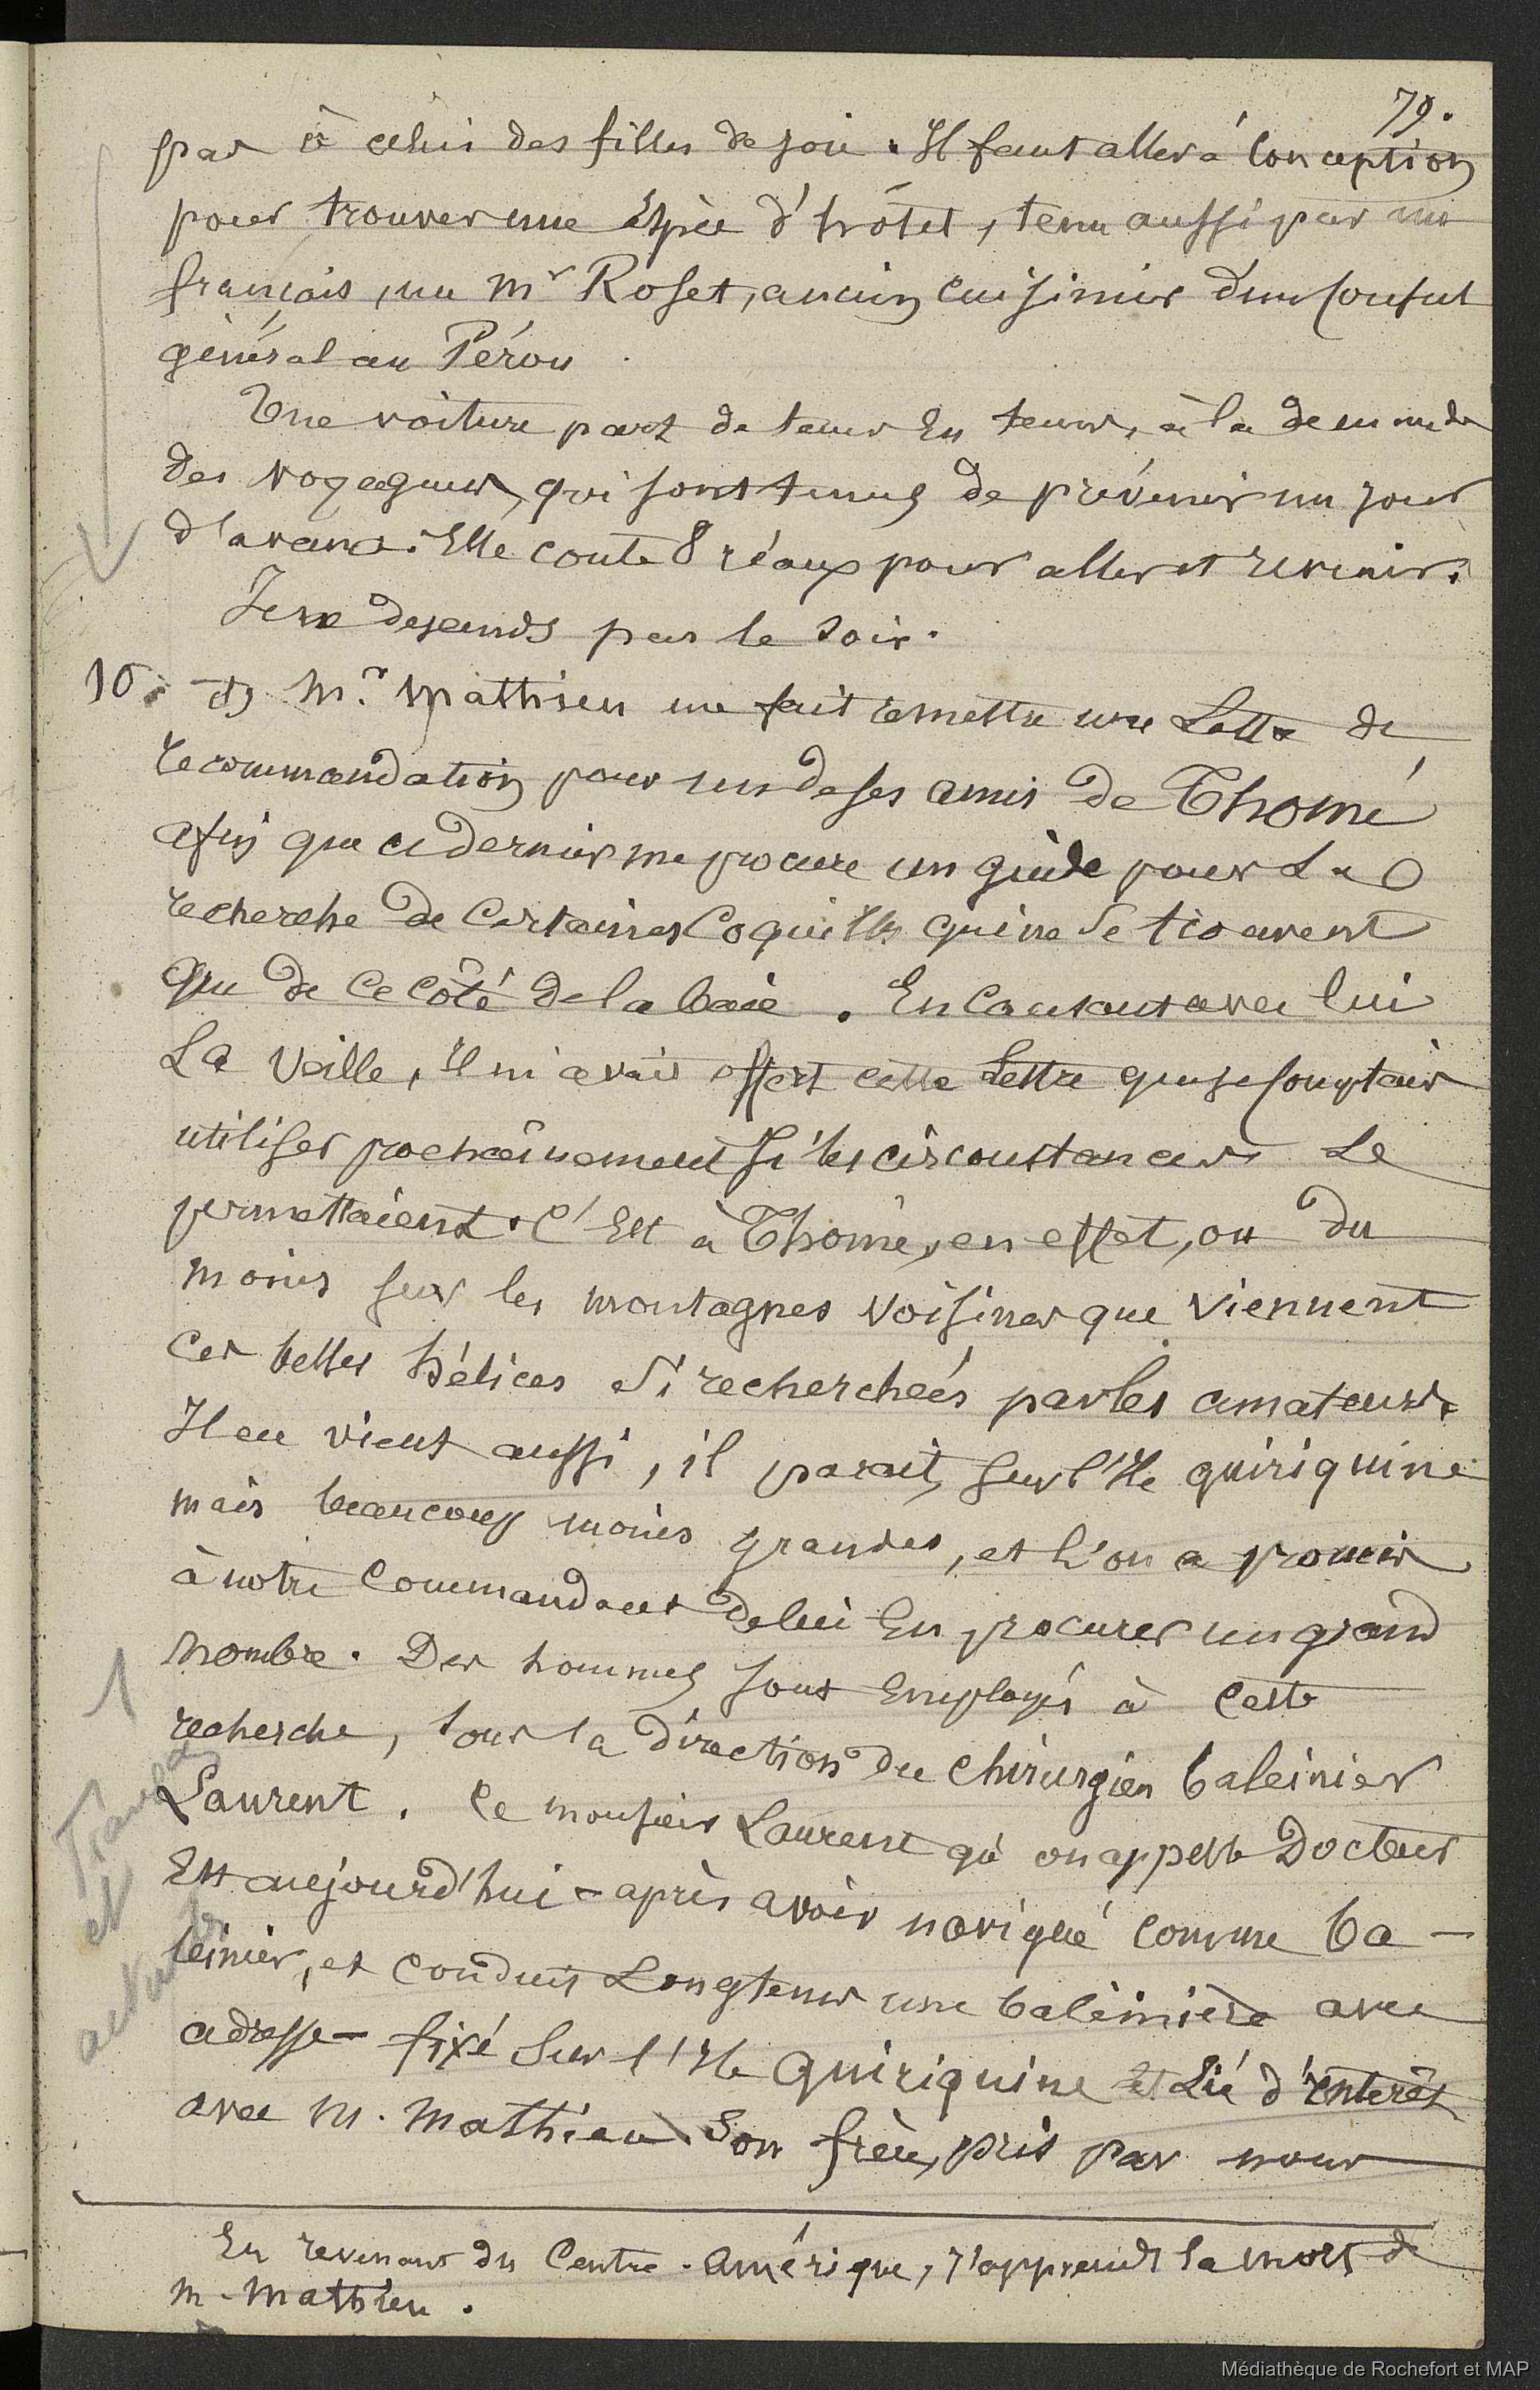 79.
pas à celui des filles de joie. Il faut aller à Conception
pour trouver une Espèce d'hôtel, tenu aussi par un
français, un Mr Roset, ancien cuisinier d'un Consul
général au Pérou
Une voiture part de tems En tems, à la demande
des voyageurs, qui sont tenus de prévenir un jour
d'avance. Elle coute 8 réaux pour aller et revenir.
Je ne descends pas le soir.
10. Mr. Mathieu me fait remettre une Lettre de
recommandation pour un de ses amis de Thomé
afin que ce dernier me procure un guide pour La
recherche de Certaines Coquilles qui ne se trouvent
que de Ce Côté de la baie. En Causant avec lui
La Veille, Il m'avait offert cette Lettre que je Comptais
utiliser prochainement si les circonstances Le
permettaient. C'Est à Thomé, en effet, ou du
moins sur les montagnes voisines que viennent
Ces belles hélices si recherchées par les amateurs.
Il en vient aussi, il parait, sur l'Ile quiriquine
mais beaucoup moins grandes, et l'on a promis
à notre Commandant de lui En procurer un grand
nombre. Des hommes sont Employés à Cette
recherche, sous la direction du chirurgien baleinier
Laurent. Ce monsieur Laurent qu'on appelle Docteur
Est aujourd'hui - après avoir navigué comme ba-
leinier, et conduit Longtems une baleinière avec
adresse - fixé sur l'Ile Quiriquine et Lié d'intérêt
avec M. Mathieu. Son frère, pris par nous
En revenant du Centre-Amérique, j'apprends la mort de
M. Mathieu.
1
et
Médiathèque de Rochefort et MAP